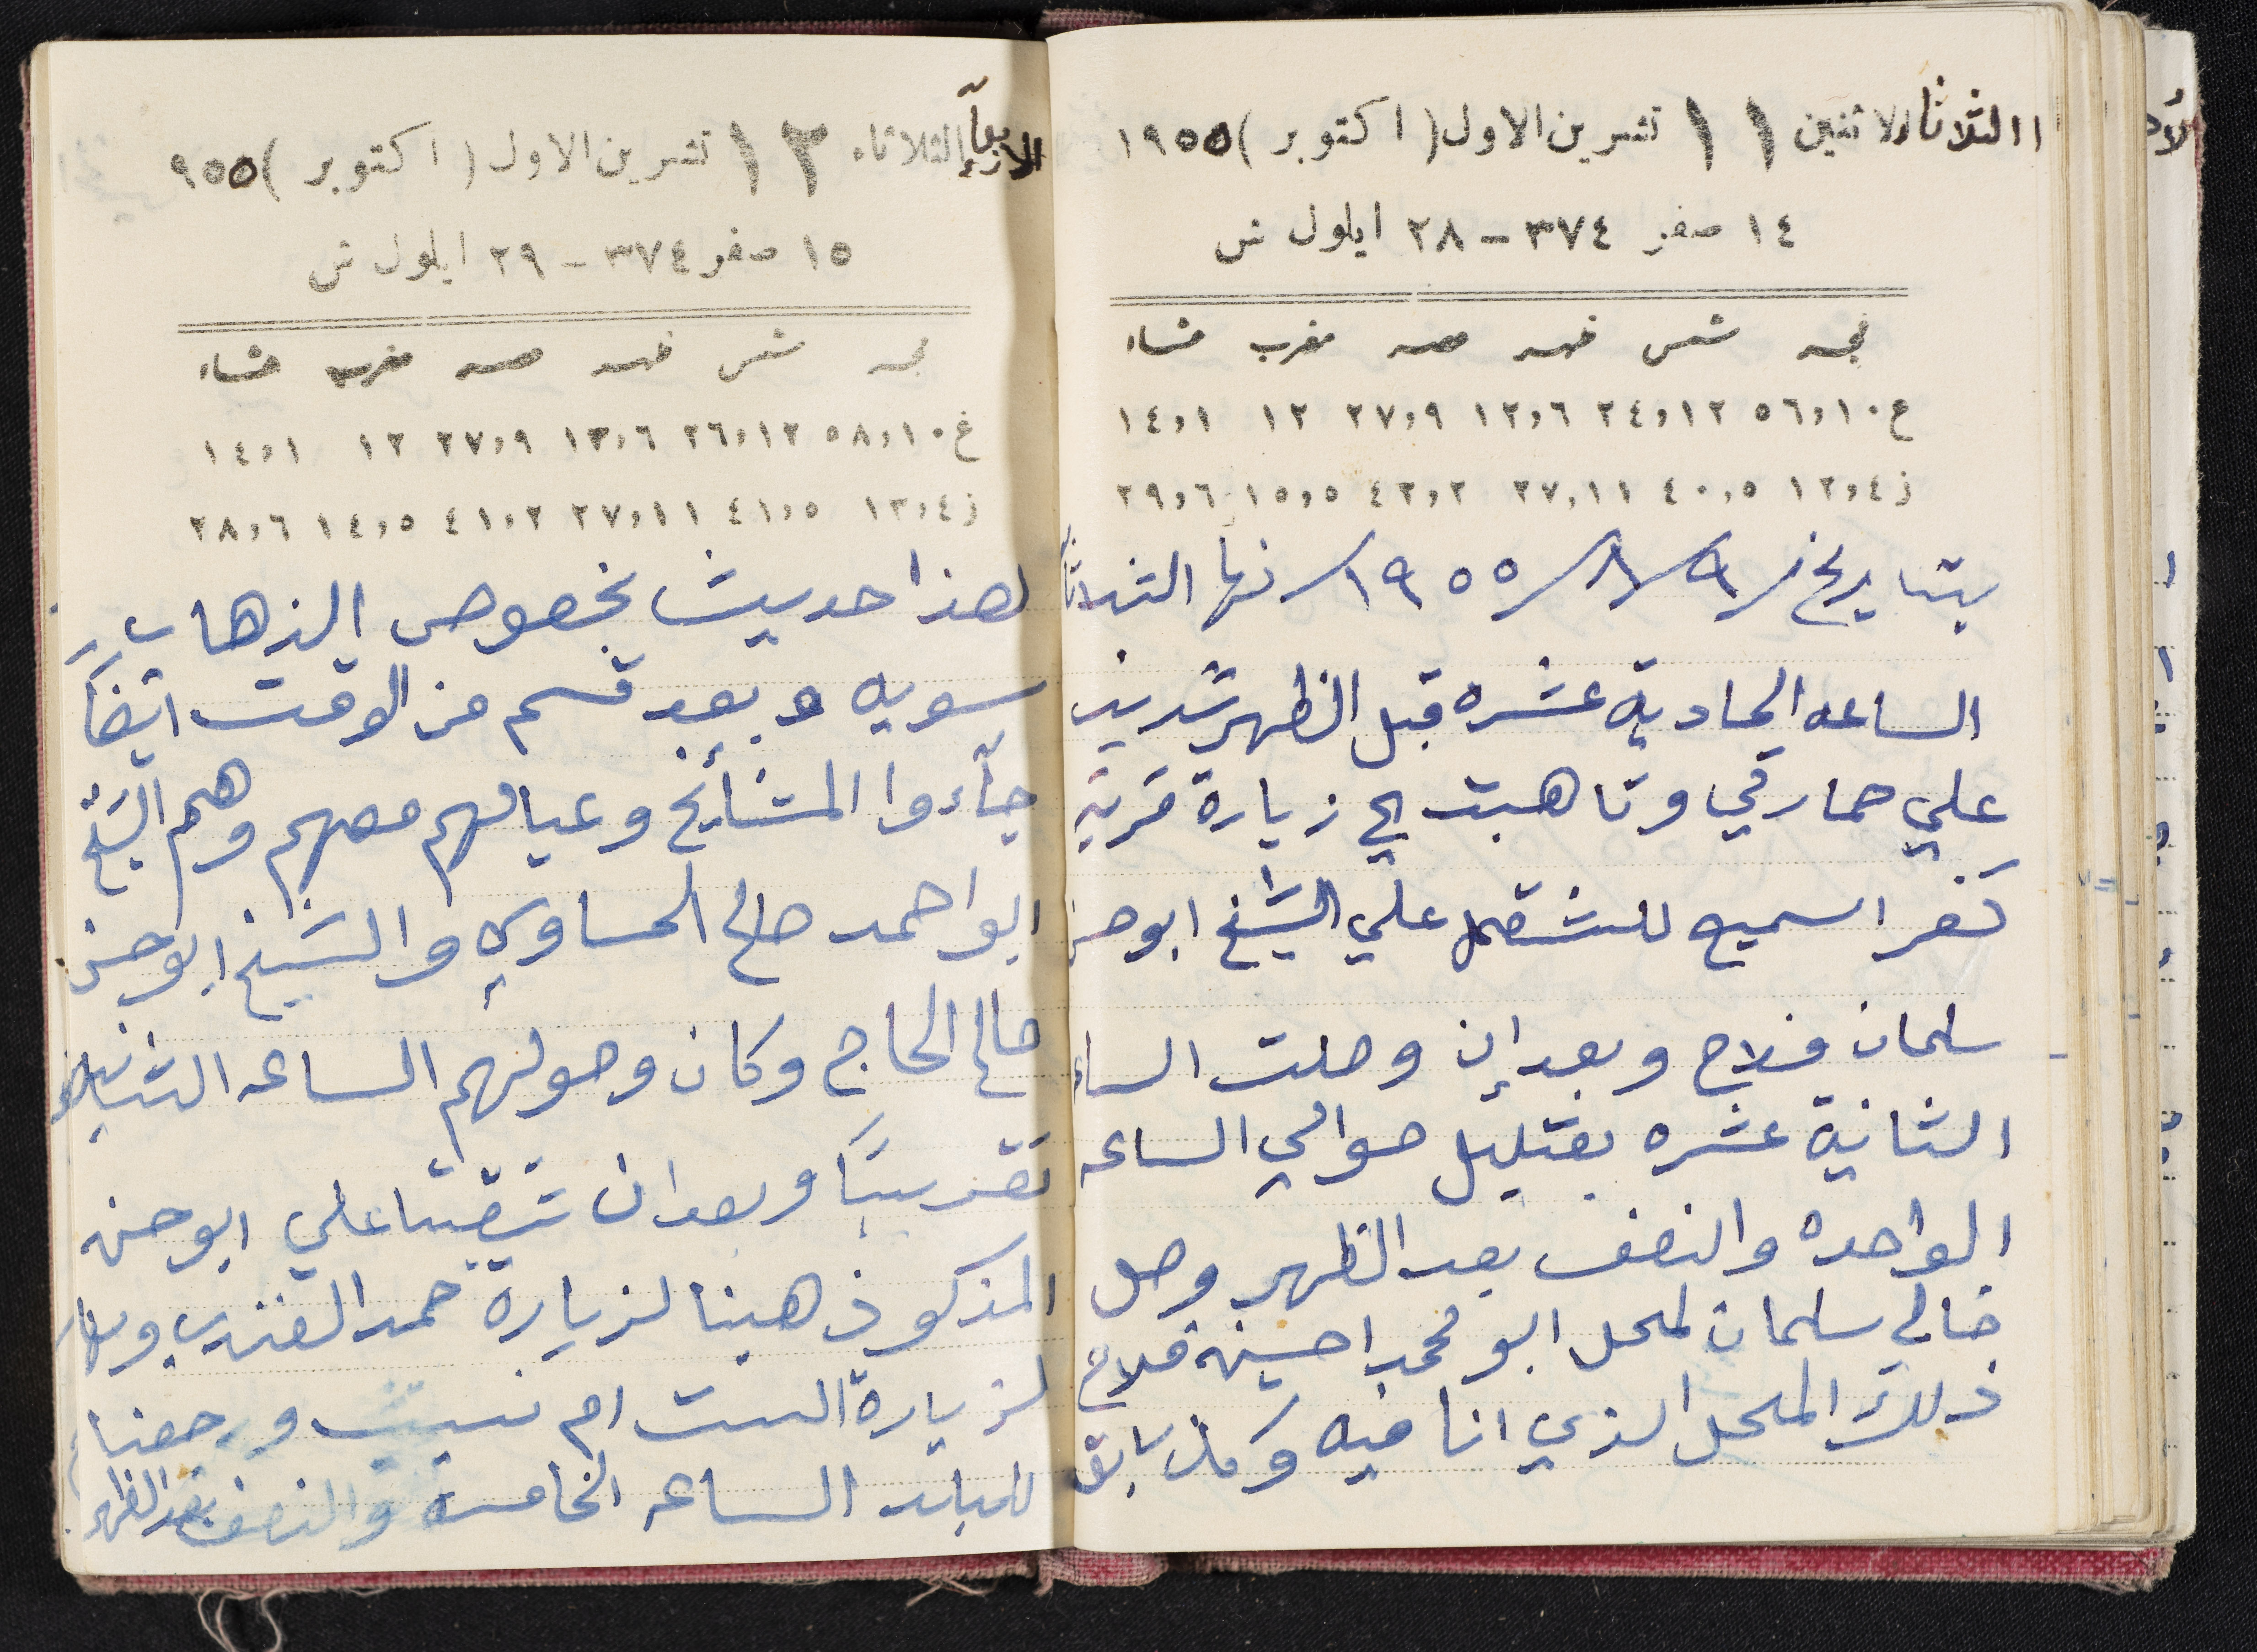 الثلاثاء الاثنين ١١ تشرين الاول ( اكتوبر ) ١٩٥٥
١٤ صفر ٣٧٤ - ٢٨ ايلول ش
فجر شمس ظهر عصر مغرب عشاء
ع ٥٦,١٠ ٢٤,١٢ ١٢,٦ ٢٧,٩ ١٢ ١٤,١
ز ١٢,٤ ٤٠,٥ ٢٧,١١ ٤٢,٢ ١٥,٥ ٢٩,٦
بتاريخ ١٩٥٥ نهار الثلاثاء
الساعه الحادية عشره قبل الظهر شديت
علي حمارتي وتاهبت الي زيارة قرية
كفر اسميع للشقه علي الشيخ ابو حسن
سلمان فلاح وبعد ان وصلت الساعه
الثانية عشره بقليل حوالي الساعه
الواحده والنصف بعد الظهر وصل
خالي سلمان لمحل ابو محمد احسين فلاح
ذلك المحل الذي انا فيه وكان سابق
الاربعاء الثلاثاء ١٢ تشرين الاول ( اكتوبر ) ٩٥٥
١٥ صفر ٣٧٤ - ٢٩ ايلول ش
فجر شمس ظهر عصر مغرب عشاء
غ ٥٨,١٠ ٢٦,١٢ ١٣,٦ ٢٧,٩ ١٢ ١٤,١
ز ١٣,٤ ٤١,٥ ٢٧,١١ ٤١,٢ ١٤,٥ ٢٨,٦
لهذا حديث بخصوص الذهاب
سويه وبعد قسم من الوقت ايضاً
جآءوا المشائخ وعيالهم معهم وهم الشيخ
ابو احمد صالح الحساوي والشيخ ابو حسن
صالح الحاج وكان وصولهم الساعه الثانيه
تقريباً وبعد ان شقينا علي ابو حسن
المذكور ذهبنا لزيارة حمد الفندي وبعد
لزيارة الست ام نسيب ورجعنا
للبلد الساعه الخامسه والنصف بعد الظهر